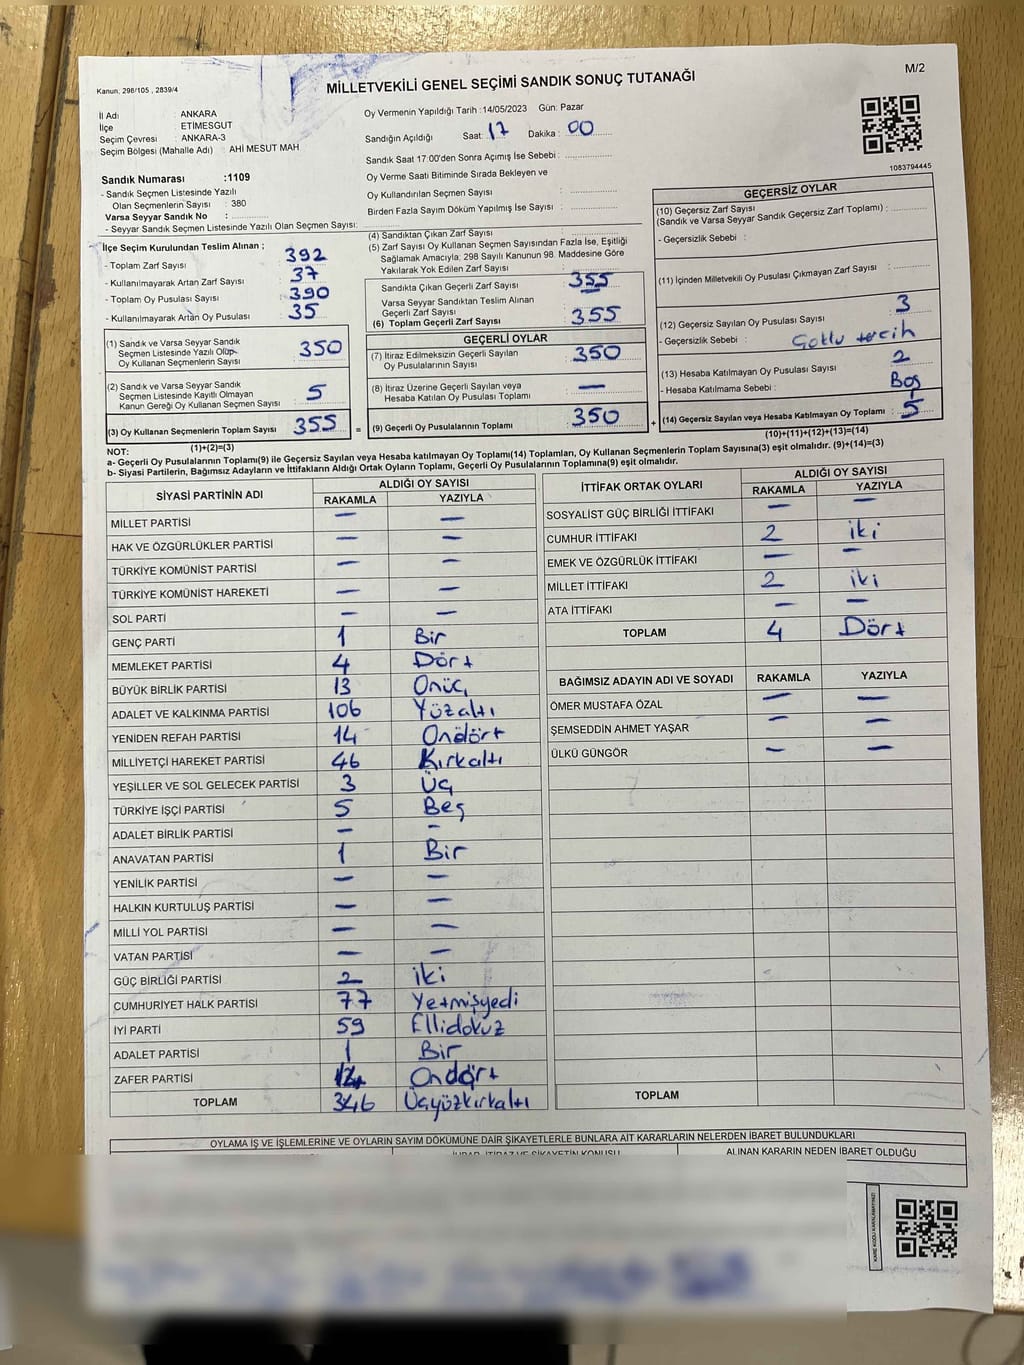 MİLLETVEKİLİ GENEL SEÇİMİ SANDIK SONUÇ TUTANAĞI
M/2
Kanun: 298/105 , 2839/4
İl Adı : ANKARA
İlçe : ETİMESGUT
Seçim Çevresi : ANKARA-3
Seçim Bölgesi (Mahalle Adı) : AHİ MESUT MAH
Sandık Numarası :1109
- Sandık Seçmen Listesinde Yazılı
Olan Seçmenlerin Sayısı : 380
Varsa Seyyar Sandık No :
- Seyyar Sandık Seçmen Listesinde Yazılı Olan Seçmen Sayısı:
Oy Vermenin Yapıldığı Tarih : 14/05/2023 Gün: Pazar
Sandığın Açıldığı Saat: 17 Dakika : 00
Sandık Saat 17:00'den Sonra Açımış İse Sebebi :
Oy Verme Saati Bitiminde Sırada Bekleyen ve
Oy Kullandırılan Seçmen Sayısı :
Birden Fazla Sayım Döküm Yapılmış İse Sayısı :
1083794445
İlçe Seçim Kurulundan Teslim Alınan ;
- Toplam Zarf Sayısı : 392
- Kullanılmayarak Artan Zarf Sayısı : 37
- Toplam Oy Pusulası Sayısı : 390
- Kullanılmayarak Artan Oy Pusulası : 35
(1) Sandık ve Varsa Seyyar Sandık
Seçmen Listesinde Yazılı Olup
Oy Kullanan Seçmenlerin Sayısı : 350
(2) Sandık ve Varsa Seyyar Sandık
Seçmen Listesinde Kayıtlı Olmayan
Kanun Gereği Oy Kullanan Seçmen Sayısı : 5
(3) Oy Kullanan Seçmenlerin Toplam Sayısı 355 =
(4) Sandıktan Çıkan Zarf Sayısı
(5) Zarf Sayısı Oy Kullanan Seçmen Sayısından Fazla İse, Eşitliği
Sağlamak Amacıyla; 298 Sayılı Kanunun 98. Maddesine Göre
Yakılarak Yok Edilen Zarf Sayısı :
Sandıkta Çıkan Geçerli Zarf Sayısı : 355
Varsa Seyyar Sandıktan Teslim Alınan
Geçerli Zarf Sayısı :
(6) Toplam Geçerli Zarf Sayısı : 355
GEÇERLİ OYLAR
(7) İtiraz Edilmeksizin Geçerli Sayılan
Oy Pusulalarının Sayısı : 350
(8) İtiraz Üzerine Geçerli Sayılan veya
Hesaba Katılan Oy Pusulası Toplamı : —
(9) Geçerli Oy Pusulalarının Toplamı : 350 +
GEÇERSİZ OYLAR
(10) Geçersiz Zarf Sayısı
(Sandık ve Varsa Seyyar Sandık Geçersiz Zarf Toplamı) :
- Geçersizlik Sebebi :
(11) İçinden Milletvekili Oy Pusulası Çıkmayan Zarf Sayısı :
(12) Geçersiz Sayılan Oy Pusulası Sayısı : 3
- Geçersizlik Sebebi : Çoklu tercih
(13) Hesaba Katılmayan Oy Pusulası Sayısı : 2
- Hesaba Katılmama Sebebi : Boş
(14) Geçersiz Sayılan veya Hesaba Katılmayan Oy Toplamı : 5
NOT: (1)+(2)=(3)
(10)+(11)+(12)+(13)=(14)
a- Geçerli Oy Pusulalarının Toplamı(9) ile Geçersiz Sayılan veya Hesaba katılmayan Oy Toplamı(14) Toplamları, Oy Kullanan Seçmenlerin Toplam Sayısına(3) eşit olmalıdır. (9)+(14)=(3)
b- Siyasi Partilerin, Bağımsız Adayların ve İttifakların Aldığı Ortak Oyların Toplamı, Geçerli Oy Pusulalarının Toplamına(9) eşit olmalıdır.
SİYASİ PARTİNİN ADI ALDIĞI OY SAYISI
RAKAMLA YAZIYLA
MİLLET PARTİSİ — —
HAK VE ÖZGÜRLÜKLER PARTİSİ — —
TÜRKİYE KOMÜNİST PARTİSİ — —
TÜRKİYE KOMÜNİST HAREKETİ — —
SOL PARTİ — —
GENÇ PARTİ 1 Bir
MEMLEKET PARTİSİ 4 Dört
BÜYÜK BİRLİK PARTİSİ 13 Onüç
ADALET VE KALKINMA PARTİSİ 106 Yüzaltı
YENİDEN REFAH PARTİSİ 14 Ondört
MİLLİYETÇİ HAREKET PARTİSİ 46 Kırkaltı
YEŞİLLER VE SOL GELECEK PARTİSİ 3 Üç
TÜRKİYE İŞÇİ PARTİSİ 5 Beş
ADALET BİRLİK PARTİSİ — —
ANAVATAN PARTİSİ 1 Bir
YENİLİK PARTİSİ — —
HALKIN KURTULUŞ PARTİSİ — —
MİLLİ YOL PARTİSİ — —
VATAN PARTİSİ — —
GÜÇ BİRLİĞİ PARTİSİ 2 iki
CUMHURİYET HALK PARTİSİ 77 Yetmişyedi
İYİ PARTİ 59 Ellidokuz
ADALET PARTİSİ 1 Bir
ZAFER PARTİSİ 14 Ondört
TOPLAM 346 Üçyüzkırkaltı
İTTİFAK ORTAK OYLARI ALDIĞI OY SAYISI
RAKAMLA YAZIYLA
SOSYALİST GÜÇ BİRLİĞİ İTTİFAKI — —
CUMHUR İTTİFAKI 2 iki
EMEK VE ÖZGÜRLÜK İTTİFAKI — —
MİLLET İTTİFAKI 2 iki
ATA İTTİFAKI — —
TOPLAM 4 Dört
BAĞIMSIZ ADAYIN ADI VE SOYADI RAKAMLA YAZIYLA
ÖMER MUSTAFA ÖZAL — —
ŞEMSEDDİN AHMET YAŞAR — —
ÜLKÜ GÜNGÖR — —
TOPLAM
OYLAMA İŞ VE İŞLEMLERİNE VE OYLARIN SAYIM DÖKÜMÜNE DAİR ŞİKAYETLERLE BUNLARA AİT KARARLARIN NELERDEN İBARET BULUNDUKLARI
ALINAN KARARIN NEDEN İBARET OLDUĞU
KARE KODU KARALAMAYINIZ!